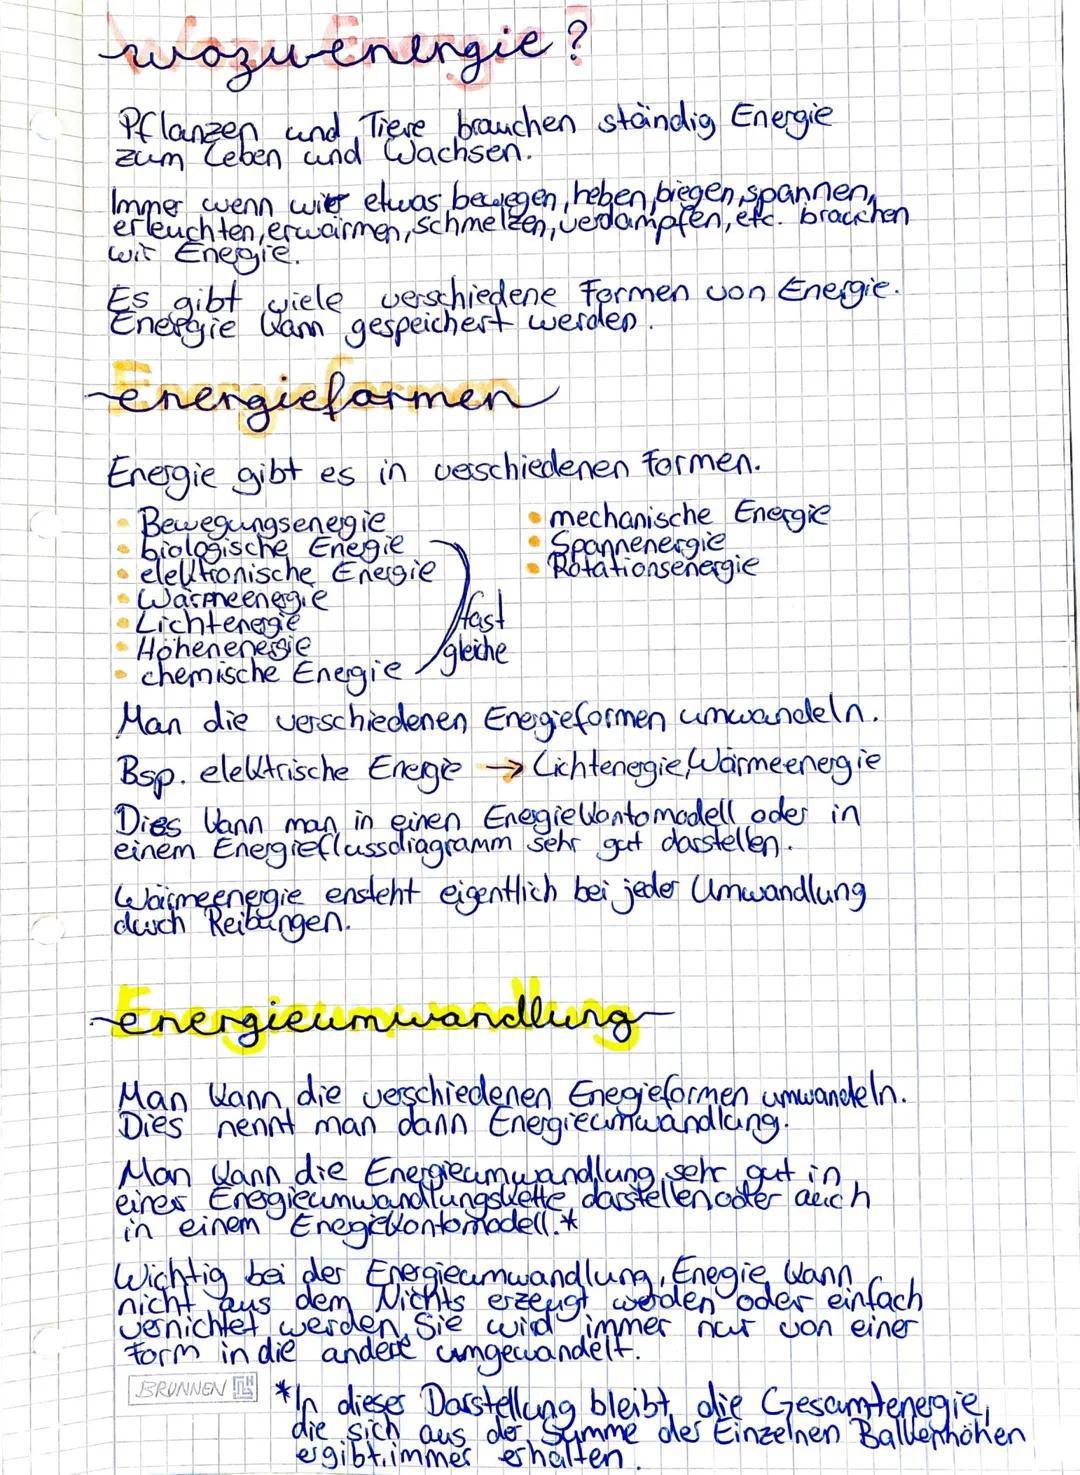 Wozu Energie?
Pflanzen und Tiere brauchen ständig Energie
zum Leben und Wachsen.
Immer wenn wir etwas bewegen, heben, biegen, spannen,
erleuchten, erwärmen, schmelzen, verdampfen, etc. brauchen
wir Energie.
Es gibt viele verschiedene Formen von Energie.
Energie kann gespeichert werden.
Energieformen
Energie gibt es in verschiedenen Formen.
• Bewegungsenergie
• biologische Energie
• elektronische Energie
• Wärmeenergie
• Lichtenergie
• Höhenenergie
• chemische Energie
fast
gleiche
• mechanische Energie
• Spannenergie
• Rotationsenergie
Man die verschiedenen Energieformen umwandeln.
Bsp. elektrische Energie → Lichtenergie, Wärmeenergie
Dies kann man in einen Energiekontomodell oder in
einem Energieflussdiagramm sehr gut darstellen.
Wärmeenergie ensteht eigentlich bei jeder Umwandlung
durch Reibungen.
Energieumwandlung
Man kann die verschiedenen Enegieformen umwandeln.
Dies nennt man dann Energieumwandlung.
Man kann die Energieumwandlung sehr gut in
einer Energieumwandlungskette darstellen, oder auch
in einem Energiekontomodell.*
Wichtig bei der Energieumwandlung, Enegie kann
nicht aus dem Nichts erzeugt werden oder einfach
vernichtet werden. Sie wird immer nur von einer
Form in die andere umgewandelt.
BRUNNEN
*In dieser Darstellung bleibt die Gesamtenergie,
die sich aus der Summe der Einzelnen Balkenhöhen
ergibt, immer erhalten.